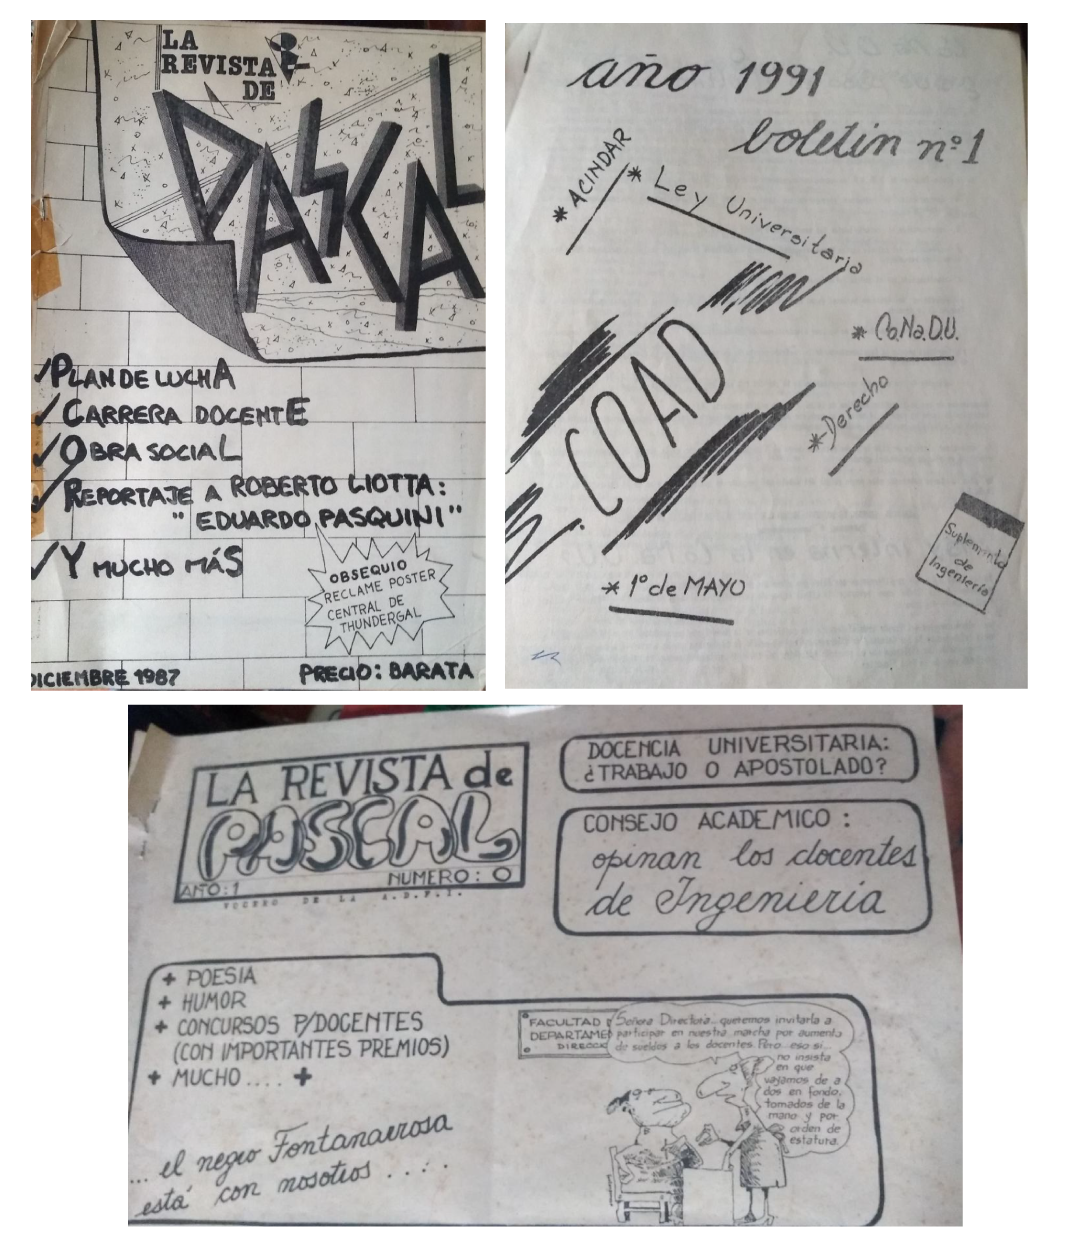 LA
REVISTA
DE
PASCAL
✓PLAN DE LUCHA
✓CARRERA DOCENTE
✓OBRA SOCIAL
✓REPORTAJE A ROBERTO LIOTTA:
"EDUARDO PASQUINI"
✓Y MUCHO MÁS
OBSEQUIO
RECLAME POSTER
CENTRAL DE
THUNDERGAL
DICIEMBRE 1987
PRECIO: BARATA
año 1991
boletín nº1
* ACINDAR
* Ley Universitaria
COAD
* Co.Na.D.U.
* Derecho
Suplemento
de
Ingeniería
* 1º de MAYO
LA REVISTA de
PASCAL
AÑO:1 NUMERO: 0
VOCERO DE LA A.D.F.I.
DOCENCIA UNIVERSITARIA:
¿TRABAJO O APOSTOLADO?
CONSEJO ACADEMICO:
opinan los docentes
de Ingeniería
+ POESIA
+ HUMOR
+ CONCURSOS P/DOCENTES
(CON IMPORTANTES PREMIOS)
+ MUCHO .... +
... el negro Fontanarrosa
está con nosotros ....
FACULTAD
DEPARTAME
DIRECCI
Señora Directora... queremos invitarla a
participar en nuestra marcha por aumento
de sueldos a los docentes. Pero... eso si...
no insista
en que
vayamos de a
dos en fondo,
tomados de la
mano y por
orden de
estatura.